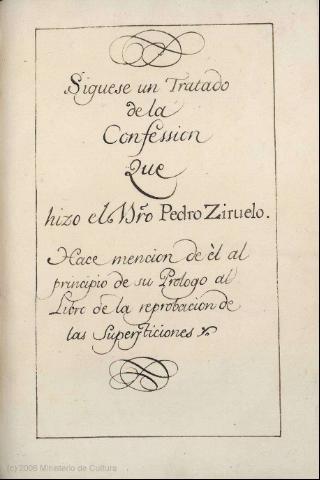 Siguese un Tratado
de la
Confession
Que
hizo el Mro Pedro Ziruelo.
Hace mencion de èl al
principio de su Prologo al
Libro de la reprobacion de
las Supersticiones
(c) 2006 Ministerio de Cultura